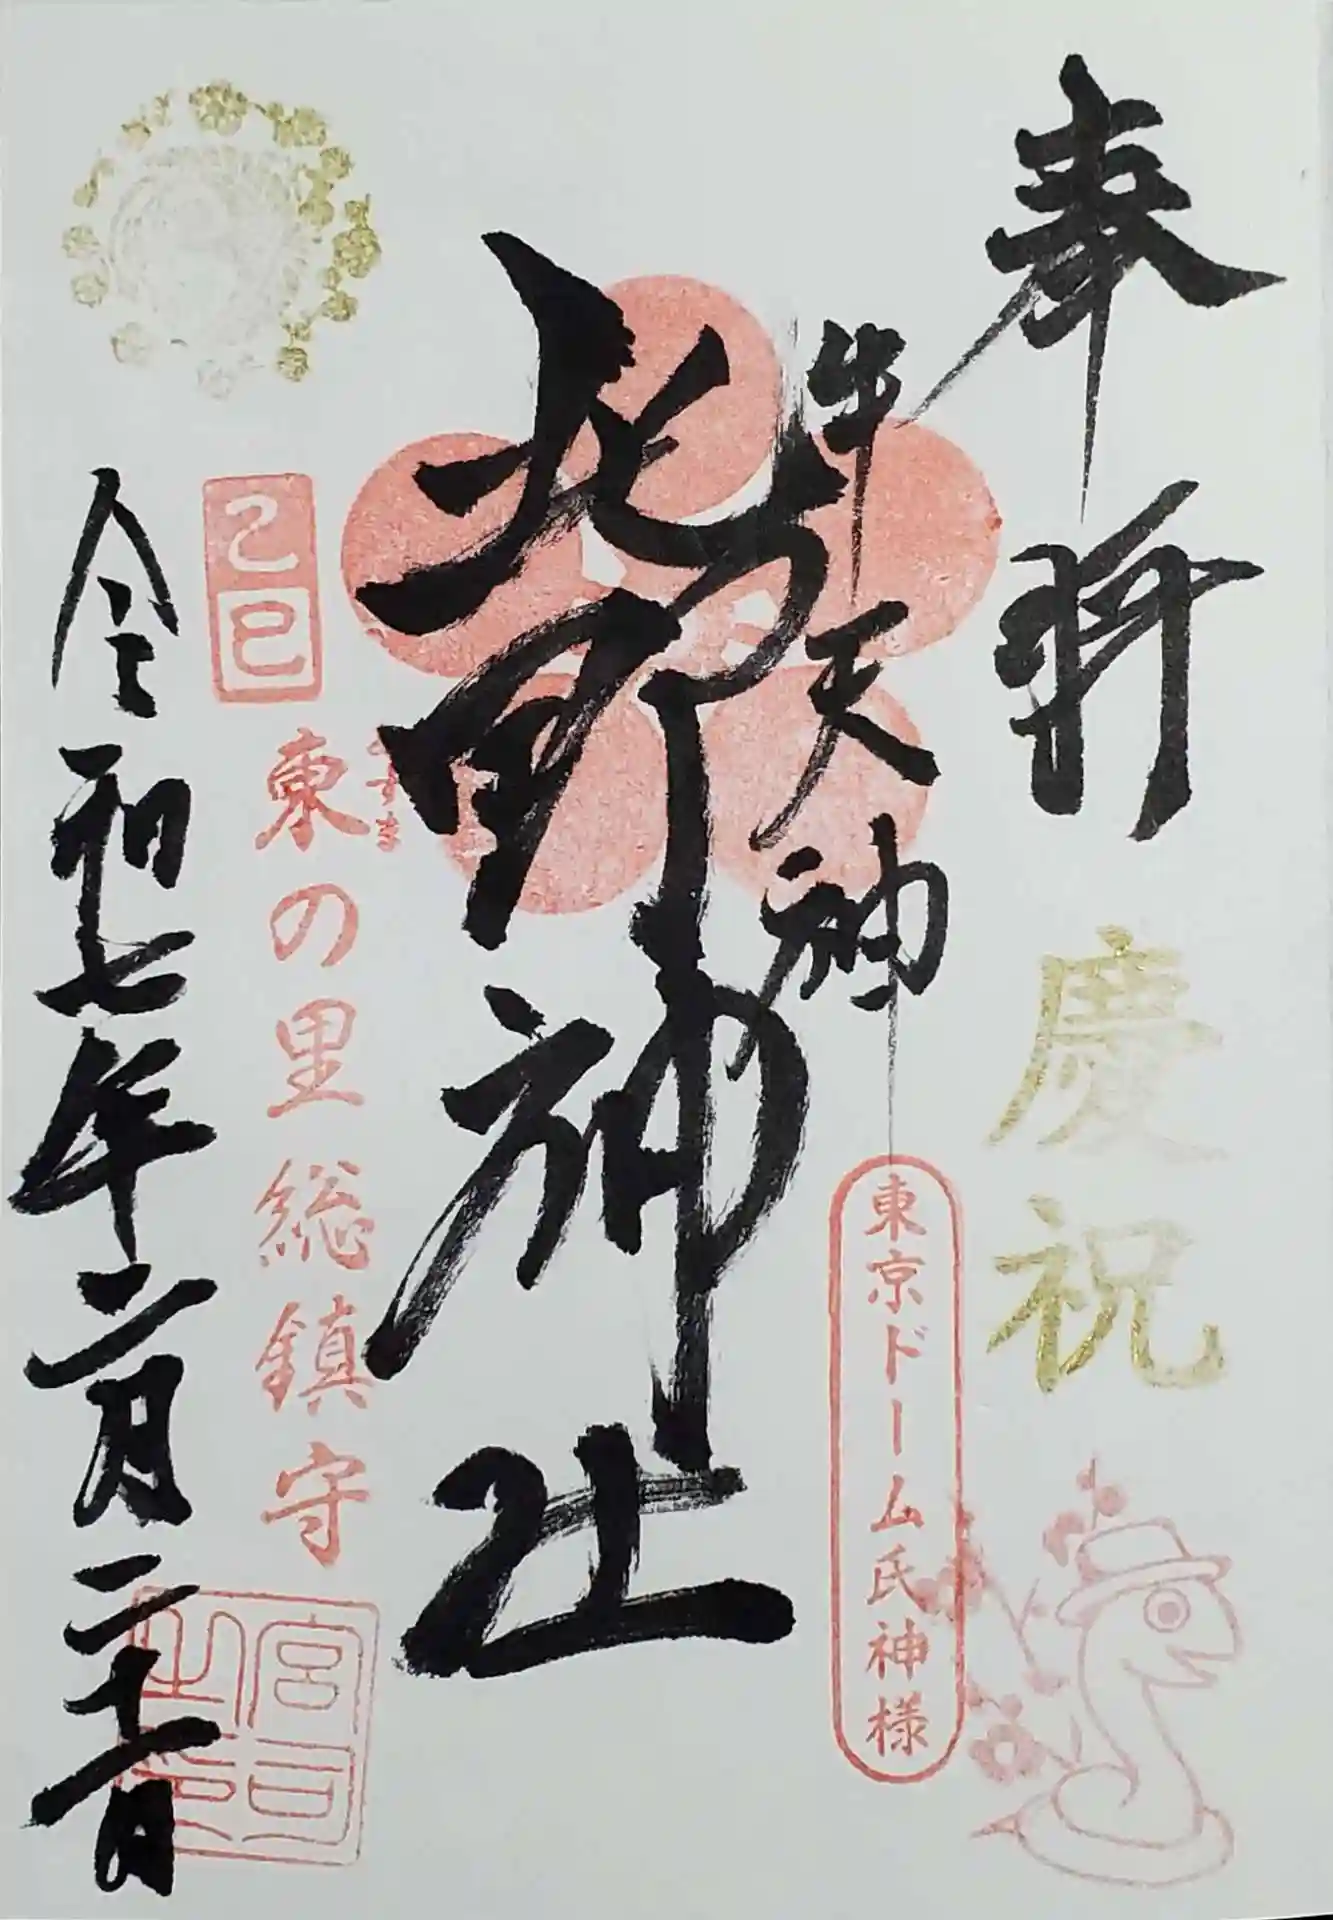 奉拝
慶祝
牛天神
東京ドーム氏神様
北野神社
あずま
東の里総鎮守
乙巳
宮司之印
令和七年二月二十一日